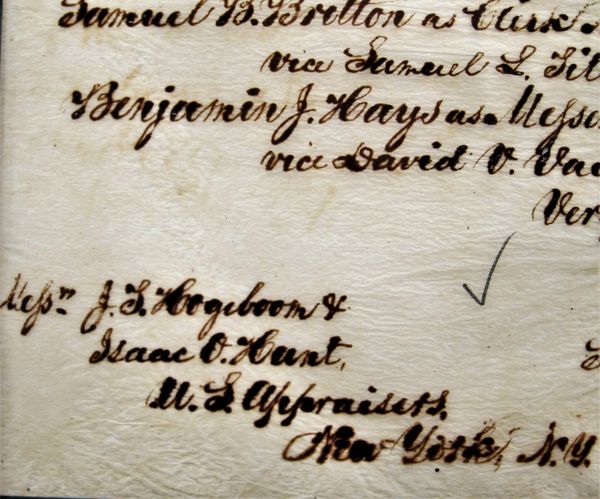 Samuel B. Britton as Clerk
vice Samuel L.
Benjamin J. Hays as
vice David V.
Messrs J. S. Hogeboom &
Isaac O. Hunt,
U. S. Appraisers,
New York, N.Y.